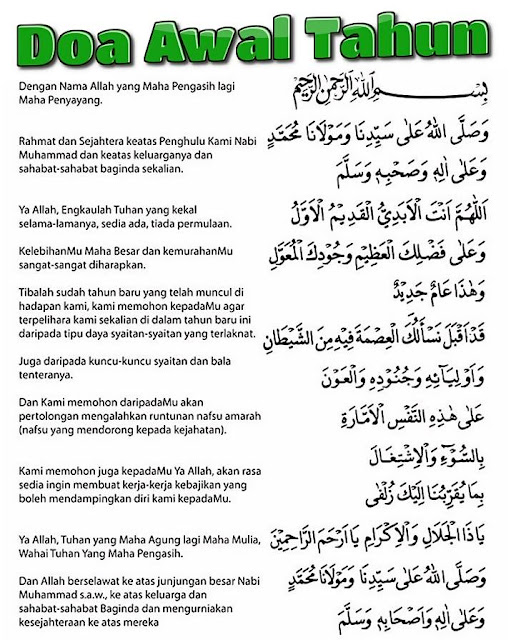 Doa Awal Tahun
Dengan Nama Allah yang Maha Pengasih lagi
Maha Penyayang.
بِسْــــــمِ اللهِ الرَّحْمٰنِ الرَّحِيْمِ
Rahmat dan Sejahtera keatas Penghulu Kami Nabi
Muhammad dan keatas keluarganya dan
sahabat-sahabat baginda sekalian.
وَصَلَّى اللهُ عَلٰى سَيِّدِنَا وَمَوْلَانَا مُحَمَّدٍ
وَعَلٰى اٰلِهٖ وَصَحْبِهٖ وَسَلَّمَ
Ya Allah, Engkaulah Tuhan yang kekal
selama-lamanya, sedia ada, tiada permulaan.
اَللّٰهُمَّ اَنْتَ الْاَبَدِيُّ الْقَدِيْمُ الْاَوَّلُ
KelebihanMu Maha Besar dan kemurahanMu
sangat-sangat diharapkan.
وَعَلٰى فَضْلِكَ الْعَظِيْمِ وَجُوْدِكَ الْمُعَوَّلِ
Tibalah sudah tahun baru yang telah muncul di
hadapan kami, kami memohon kepadaMu agar
terpelihara kami sekalian di dalam tahun baru ini
daripada tipu daya syaitan-syaitan yang terlaknat.
وَهٰذَا عَامٌ جَدِيْدٌ
قَدْ اَقْبَلَ نَسْأَلُكَ الْعِصْمَةَ فِيْهِ مِنَ الشَّيْطَانِ
Juga daripada kuncu-kuncu syaitan dan bala
tenteranya.
وَاَوْلِيَآئِهٖ وَجُنُوْدِهٖ وَالْعَوْنَ
Dan Kami memohon daripadaMu akan
pertolongan mengalahkan runtunan nafsu amarah
(nafsu yang mendorong kepada kejahatan).
عَلٰى هٰذِهِ النَّفْسِ الْاَمَّارَةِ
بِالسُّوْۤءِ وَالْاِشْتِغَالَ
Kami memohon juga kepadaMu Ya Allah, akan rasa
sedia ingin membuat kerja-kerja kebajikan yang
boleh mendampingkan diri kami kepadaMu.
بِمَا يُقَرِّبُنَا اِلَيْكَ زُلْفٰى
Ya Allah, Tuhan yang Maha Agung lagi Maha Mulia,
Wahai Tuhan Yang Maha Pengasih.
يَا ذَا الْجَلَالِ وَالْاِكْرَامِ يَا اَرْحَمَ الرَّاحِمِيْنَ
Dan Allah berselawat ke atas junjungan besar Nabi
Muhammad s.a.w., ke atas keluarga dan
sahabat-sahabat Baginda dan mengurniakan
kesejahteraan ke atas mereka
وَصَلَّى اللهُ عَلٰى سَيِّدِنَا وَمَوْلَانَا مُحَمَّدٍ
وَعَلٰى اٰلِهٖ وَاَصْحَابِهٖ وَسَلَّمَ